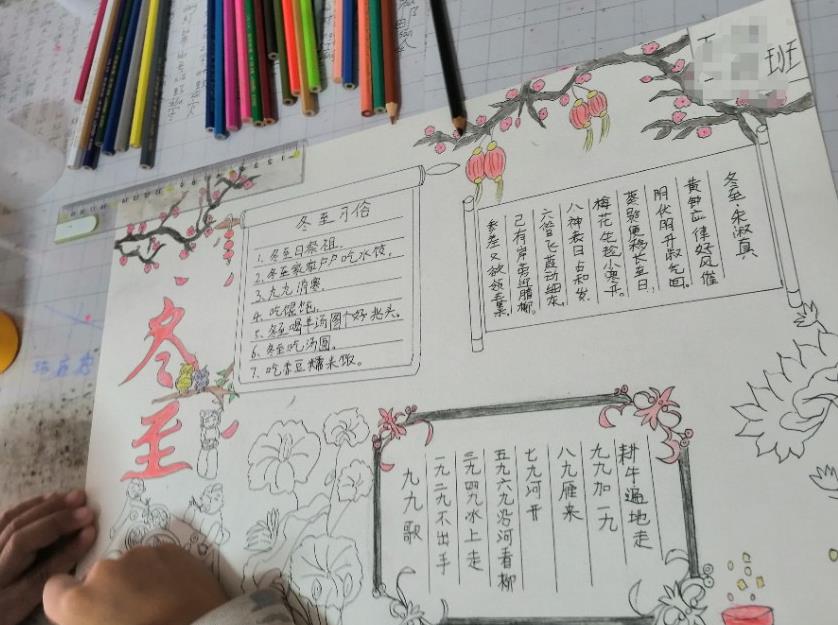 班
冬至
冬至习俗
1. 冬至日祭祖。
2. 冬至家家户户吃水饺。
3. 九九消寒
4. 吃馄饨。
5. 冬至喝羊汤图个好兆头。
6. 冬至吃汤圆。
7. 吃赤豆糯米饭。
冬至·朱淑真
黄钟应律好风催
阴伏阳升淑气回。
葵影便移长至日，
梅花先趁小寒开。
八神表日占和岁
六管飞葭动细灰
已有岸旁迎腊柳
参差又欲领春来
九九歌
一九二九不出手
三九四九冰上走
五九六九沿河看柳
七九河开
八九雁来
九九加一九
耕牛遍地走